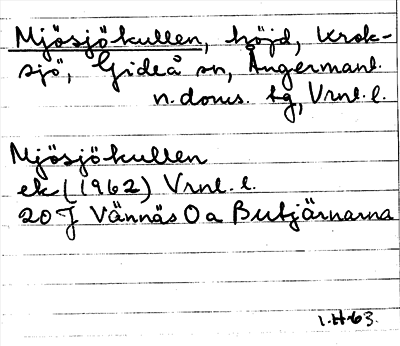 Mjösjökullen, höjd, Krok-
sjö, Gideå sn, Ångermanl.
n. doms. tg, Vrnl. l.
Mjösjökullen
ek (1962) Vrnl. l.
20 J Vännäs O a Butjärnarna
1.H-63.